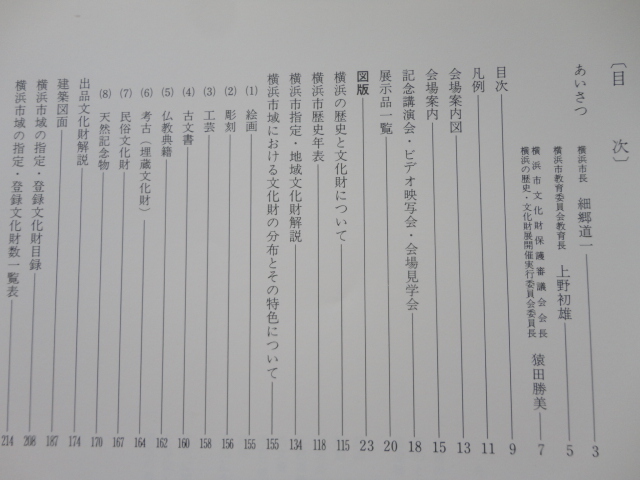 〔目 次〕
あいさつ
横浜市長 細郷道一 3
横浜市教育委員会教育長 上野初雄 5
横浜市文化財保護審議会会長
横浜の歴史・文化財展開催実行委員会委員長 猿田勝美 7
目次 9
凡例 11
会場案内図 13
会場案内 15
記念講演会・ビデオ映写会・会場見学会 18
展示品一覧 20
図版 23
横浜の歴史と文化財について 115
横浜市歴史年表 118
横浜市指定・地域文化財解説 134
横浜市域における文化財の分布とその特色について 155
(1) 絵画 155
(2) 彫刻 156
(3) 工芸 158
(4) 古文書 160
(5) 仏教典籍 162
(6) 考古(埋蔵文化財) 164
(7) 民俗文化財 167
(8) 天然記念物 170
出品文化財解説 174
建築図面 187
横浜市域の指定・登録文化財目録 208
横浜市域の指定・登録文化財数一覧表 214